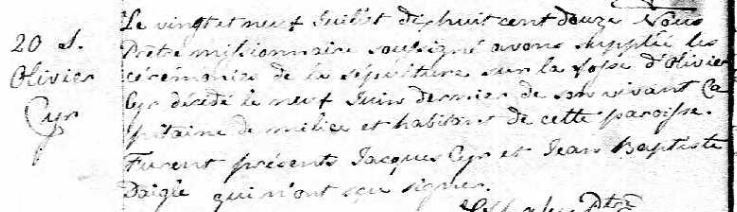 Le vingt et neuf Juillet dix huit cent douze Nous
20 S. Prêtre missionnaire soussigné avons supplée les
Olivier cérémonies de la sépulture sur la fosse d'Olivier
Cyr Cyr décédé le neuf Juin dernier de son vivant Ca
pitaine de milice et habitant de cette paroisse.
Furent présents Jacques Cyr et Jean Baptiste
Daigle qui n'ont sçu signer.
Ptre